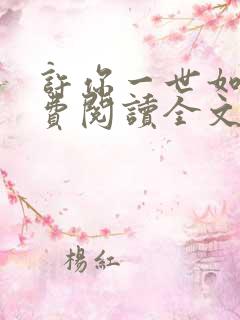 許你一世如
費閱讀全文
楊紅